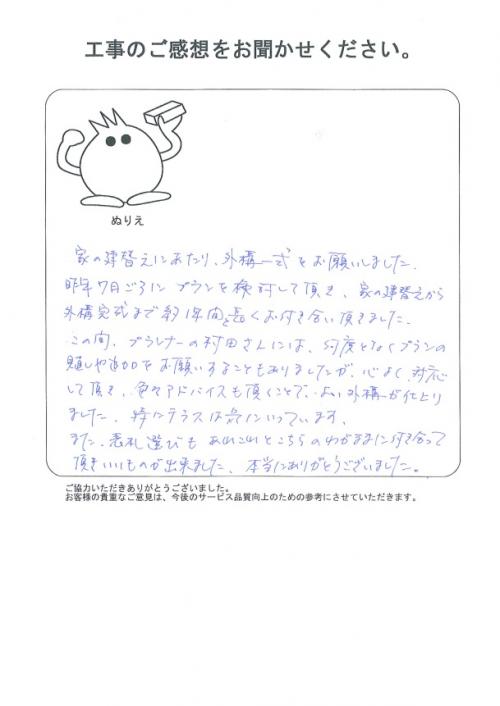 工事のご感想をお聞かせください。
ぬりえ
家の建替えにあたり、外構一式をお願いしました。
昨年7月ごろにプランを検討して頂き、家の建替えから
外構完成まで約1年間と長くお付き合い頂きました。
この間、プランナーの村田さんには、何度となくプランの
見直しや追加をお願いすることもありましたが、心よく対応
して頂き、色々アドバイスも頂くことで、よい外構が仕上り
ました。特にテラスは気にいっています。
また、表札選びもあれこれとこちらのわがままに付き合って
頂きいいものが出来ました。本当にありがとうございました。
ご協力いただきありがとうございました。
お客様の貴重なご意見は、今後のサービス品質向上のための参考にさせていただきます。